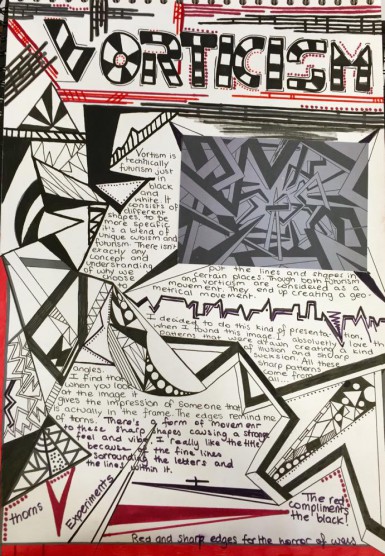 VORTICISM
Vortism is
technically
futurism just
in
black
and
white. It
consists of
different
shapes, to be
more specific
it's a blend of
unique cubism and
futurism. There isn't
exactly any
concept and
understanding
of why we
choose
to
put the lines and shapes in
certain places. Though both futurism
and vorticism are considered as a
movement. They end up creating a geo-
metrical movement.
I decided to do this kind of presentation,
when I found this image I absolutely love the
patterns that were drawn creating a kind
of illusion and sharp
All these
sharp patterns
are from
angles.
I find that
when you look
at the image it
gives the impression of someone that
is actually in the frame. The edges remind me
of thorns. There's a form of movement
to these sharp shapes causing a strange
feel and vibe. I really like the title
because of the fine lines
sorrounding the letters and
the lines within it.
thorns
Experiments
The red
compliments
the black!
Red and sharp edges for the horror of wars